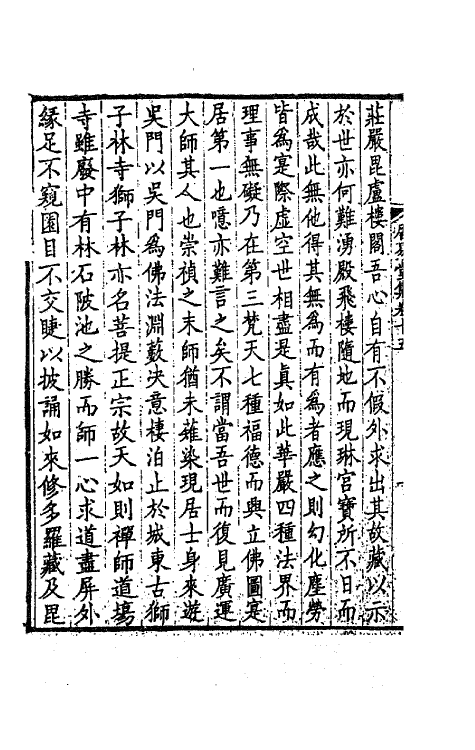 莊嚴毘盧樓閣吾心自有不假外求出其故藏以示
於世亦何難湧殿飛樓隨地而現琳宮寶所不日而
成哉此無他得其無為而有為者應之則幻化塵勞
皆為寔際虛空世相盡是真如此華嚴四種法界而
理事無礙乃在第三梵天七種福德而興立佛圖寔
居第一也噫亦難言之矣不謂當吾世而復見廣運
大師其人也崇禎之末師猶未薙染現居士身來遊
吳門以吳門為佛法淵藪决意棲泊止於城東古獅
子林寺獅子林亦名菩提正宗故天如則禪師道塲
寺雖廢中有林石陂池之勝而師一心求道盡屏外
緣足不窺園目不交睫以披誦如來修多羅藏及毘